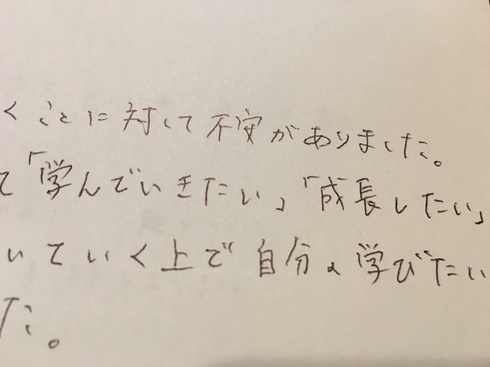 くことに対して不安がありました。
て「学んでいきたい」「成長したい」
いていく上で自分の学びたい
た。